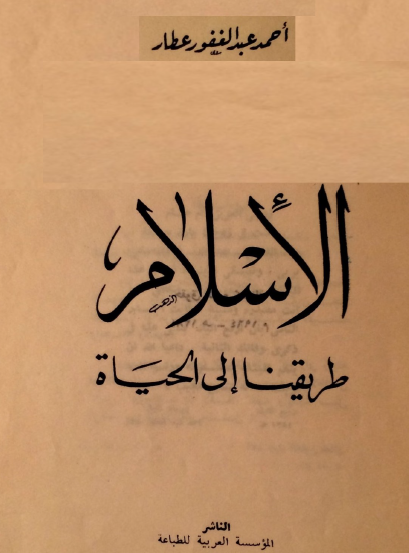 أحمد عبد الغفور عطار
الأسلام
طريقنا إلى الحياة
الناشر
المؤسسة العربية للطباعة